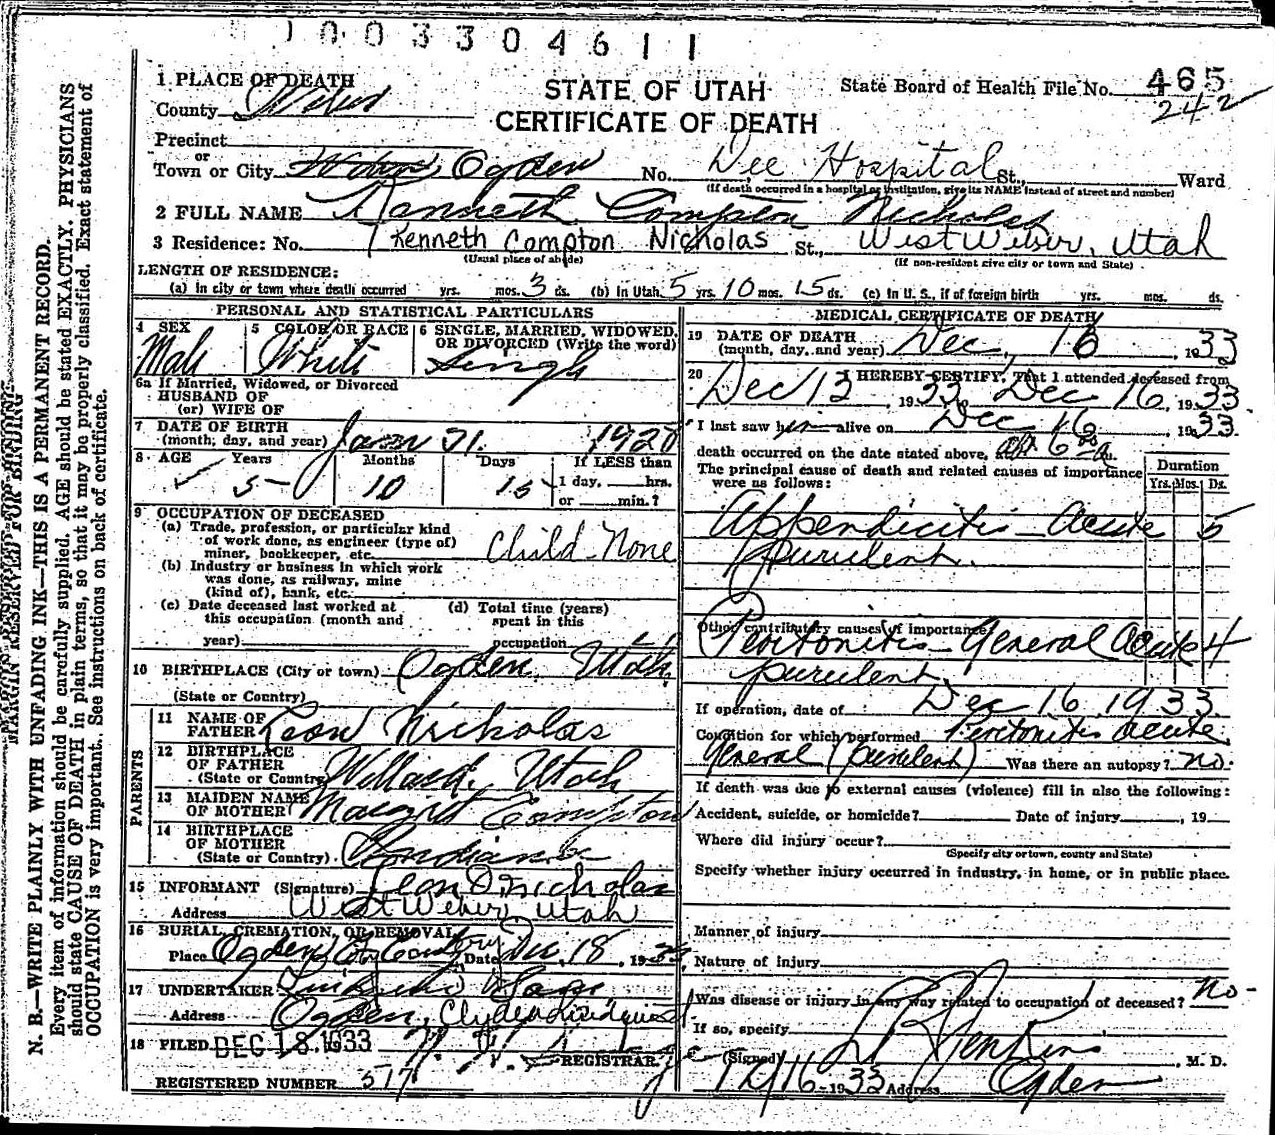 1003304611
STATE OF UTAH
CERTIFICATE OF DEATH
State Board of Health File No. 465
242
1 PLACE OF DEATH
County Weber
Precinct
or
Town or City Ogden No. Dee Hospital St., Ward
(If death occurred in a hospital or institution, give its NAME instead of street and number)
2 FULL NAME Kanneth Compton Nicholas
3 Residence: No. Kenneth Compton Nicholas St., West Weber, Utah
(Usual place of abode) (If non-resident give city or town and State)
LENGTH OF RESIDENCE:
(a) In city or town where death occurred yrs. mos. 3 ds. (b) In Utah 5 yrs. 10 mos. 15 ds. (c) In U. S., if of foreign birth yrs. mos. ds.
PERSONAL AND STATISTICAL PARTICULARS
4 SEX 5 COLOR OR RACE 6 SINGLE, MARRIED, WIDOWED,
OR DIVORCED (Write the word)
Male White Single
6a If Married, Widowed, or Divorced
HUSBAND OF
(or) WIFE OF
7 DATE OF BIRTH
(month, day, and year) Jan 31. 1928
8 AGE Years Months Days If LESS than
5 10 15 1 day, hrs.
or min.?
9 OCCUPATION OF DECEASED
(a) Trade, profession, or particular kind
of work done, as engineer (type of)
miner, bookkeeper, etc. Child-None
(b) Industry or business in which work
was done, as railway, mine
(kind of), bank, etc.
(c) Date deceased last worked at (d) Total time (years)
this occupation (month and spent in this
year) occupation
10 BIRTHPLACE (City or town) Ogden, Utah.
(State or Country)
PARENTS
11 NAME OF
FATHER Leon Nicholas
12 BIRTHPLACE
OF FATHER
(State or Country) Willard, Utah
13 MAIDEN NAME
OF MOTHER Margret Compton
14 BIRTHPLACE
OF MOTHER
(State or Country) Indiana
15 INFORMANT (Signature) Leon D Nicholas
Address West Weber, Utah
16 BURIAL, CREMATION, OR REMOVAL
Place Ogden City Cemetery Date Dec. 18, 1933
17 UNDERTAKER
Address Ogden, Clyde Lindquist
18 FILED DEC 18 1933
REGISTRAR
REGISTERED NUMBER 517
MEDICAL CERTIFICATE OF DEATH
19 DATE OF DEATH
(month, day, and year) Dec, 16, 1933
20 I HEREBY CERTIFY, That I attended deceased from
Dec 13 1933 Dec 16, 1933.
I last saw him alive on Dec 16 1933.
death occurred on the date stated above, at 6 a.
The principal cause of death and related causes of importance
were as follows:
Duration
Yrs. Mos. Ds.
Appendicitis - acute 5
purulent.
Other contributory causes of importance:
Peritonitis - General Acute 4
purulent.
If operation, date of : Dec 16 1933
Condition for which performed Peritonitis acute
General (purulent) Was there an autopsy? no.
If death was due to external causes (violence) fill in also the following:
Accident, suicide, or homicide? Date of injury , 19
Where did injury occur?
(Specify city or town, county and State)
Specify whether injury occurred in industry, in home, or in public place.
Manner of injury
Nature of injury
Was disease or injury in any way related to occupation of deceased? No-
If so, specify
(Signed) Jenkins M. D.
12/16-1933 Address Ogden
MARGIN RESERVED FOR BINDING
N. B.—WRITE PLAINLY WITH UNFADING INK—THIS IS A PERMANENT RECORD.
Every item of information should be carefully supplied. AGE should be stated EXACTLY. PHYSICIANS
should state CAUSE OF DEATH in plain terms, so that it may be properly classified. Exact statement of
OCCUPATION is very important. See instructions on back of certificate.